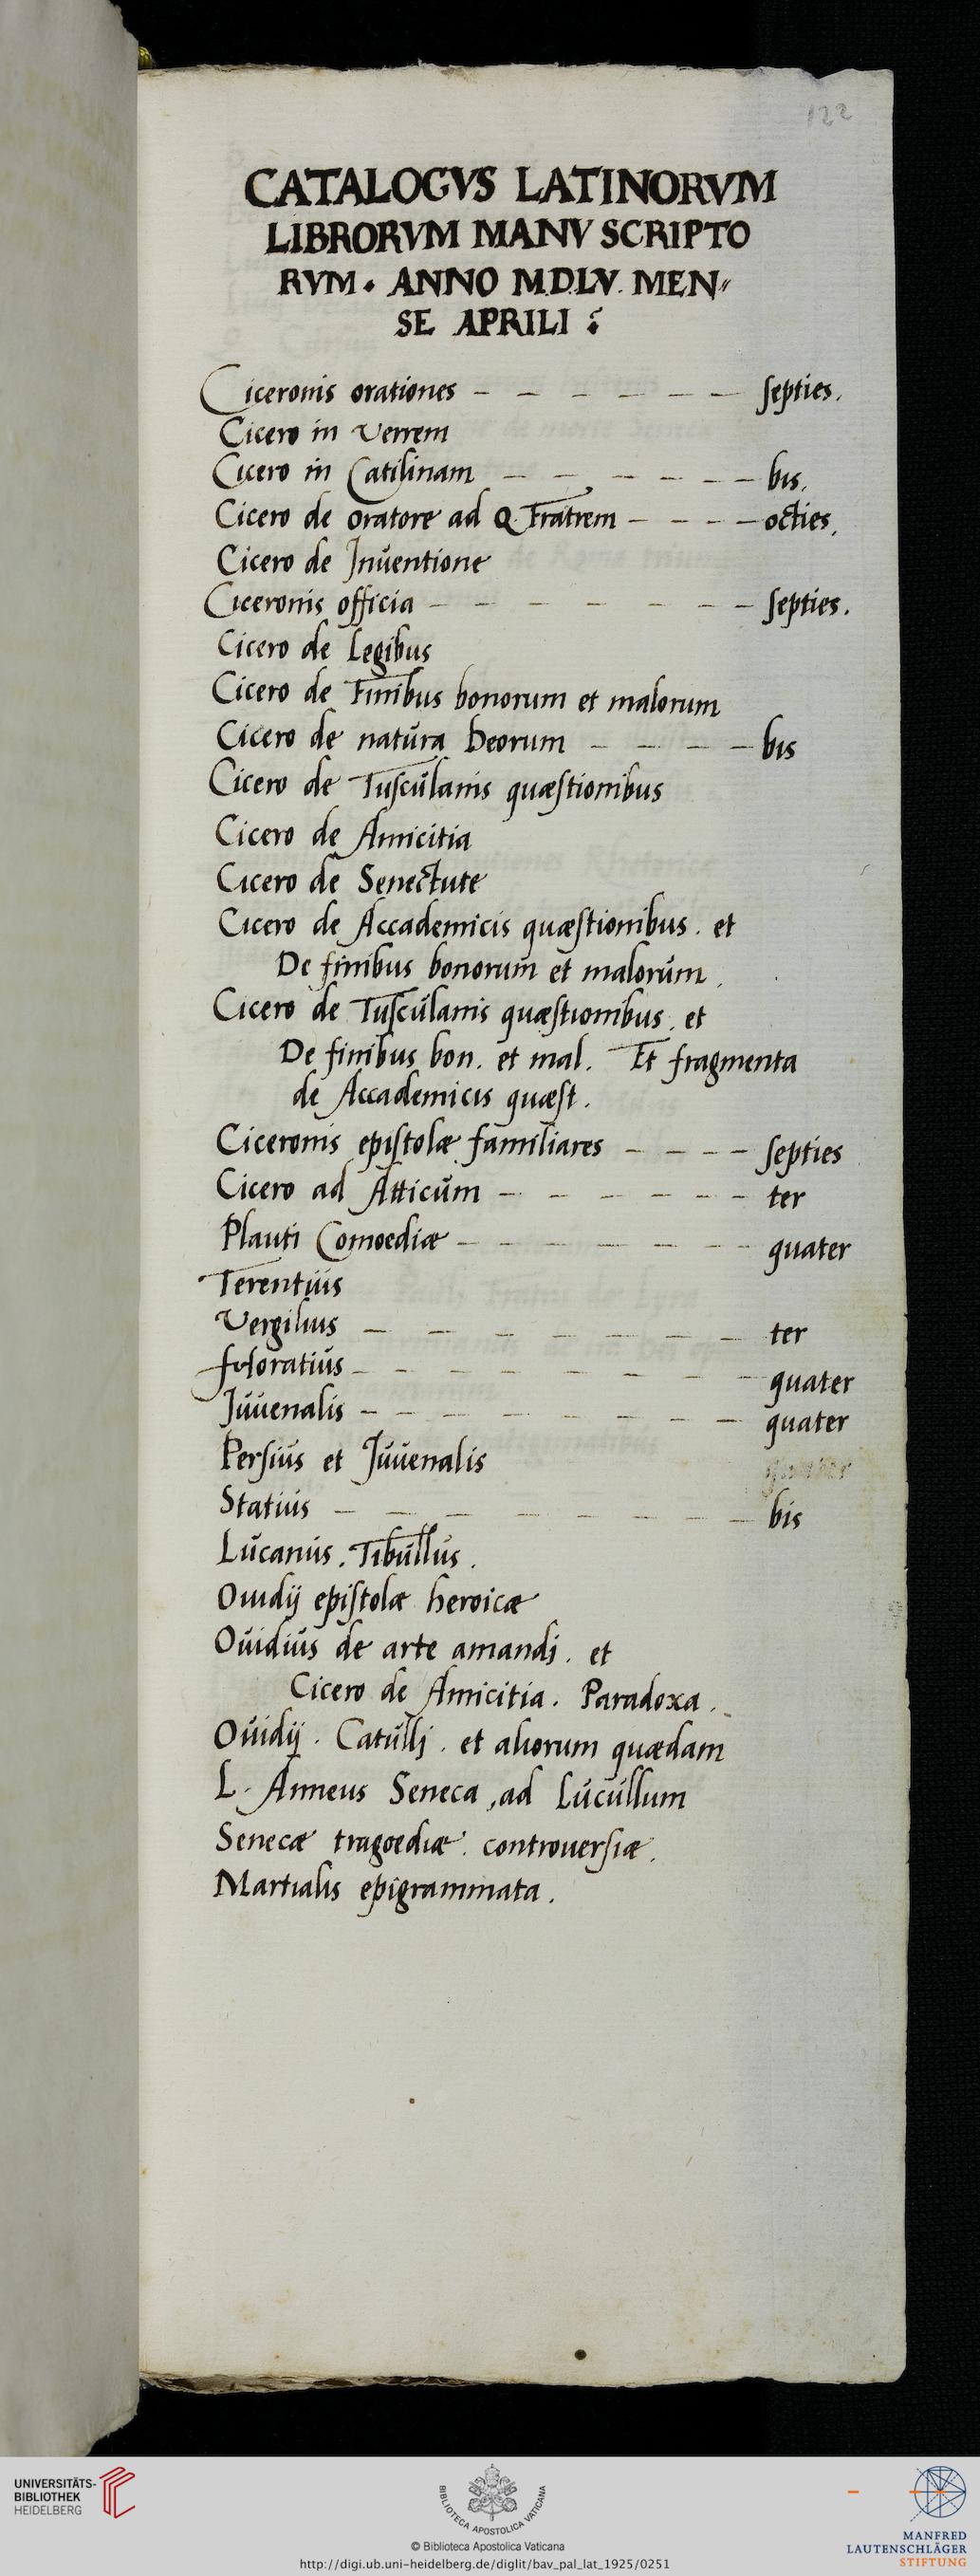 122
CATALOGVS LATINORVM
LIBRORVM MANV SCRIPTO
RVM. ANNO M.D.LV. MEN-
SE APRILI
Ciceronis orationes - - - - - - - septies.
Cicero in Verrem
Cicero in Catilinam - - - - - - bis.
Cicero de oratore ad Q. Fratrem - - - - octies.
Cicero de Inventione
Ciceronis officia - - - - - - - septies.
Cicero de Legibus
Cicero de Finibus bonorum et malorum
Cicero de natura Deorum - - - - bis
Cicero de Tusculanis quæstionibus
Cicero de Amicitia
Cicero de Senectute
Cicero de Accademicis quæstionibus. et
De finibus bonorum et malorum.
Cicero de Tusculanis quæstionibus. et
De finibus bon. et mal. Et fragmenta
de Accademicis quæst.
Ciceronis epistolæ familiares - - - - septies
Cicero ad Atticum - - - - - - ter
Plauti Comoediæ - - - - - - quater
Terentius
Vergilius - - - - - - - ter
Horatius - - - - - - - - quater
Juuenalis - - - - - - - - quater
Persius et Juuenalis quater
Statius - - - - - - - - bis
Lucanus. Tibullus.
Ouidij epistolæ heroicæ
Ouidius de arte amandj. et
Cicero de Amicitia. Paradoxa.
Ouidij. Catullj. et aliorum quædam
L. Anneus Seneca, ad Lucullum
Senecæ tragoediæ. controuersiæ.
Martialis epigrammata.
UNIVERSITÄTS-
BIBLIOTHEK
HEIDELBERG
BIBLIOTECA APOSTOLICA VATICANA
© Biblioteca Apostolica Vaticana
http://digi.ub.uni-heidelberg.de/diglit/bav_pal_lat_1925/0251
MANFRED
LAUTENSCHLÄGER
STIFTUNG